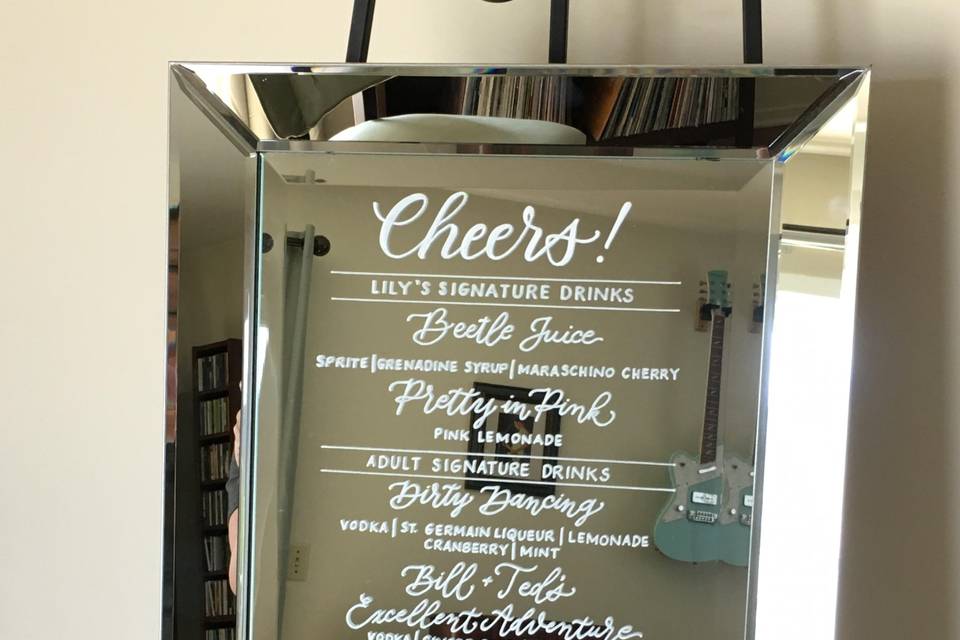 Cheers!
LILY'S SIGNATURE DRINKS
Beetle Juice
SPRITE|GRENADINE SYRUP|MARASCHINO CHERRY
Pretty in Pink
PINK LEMONADE
ADULT SIGNATURE DRINKS
Dirty Dancing
VODKA|ST. GERMAIN LIQUEUR|LEMONADE
CRANBERRY|MINT
Bill + Ted's
Excellent Adventure
VODKA|